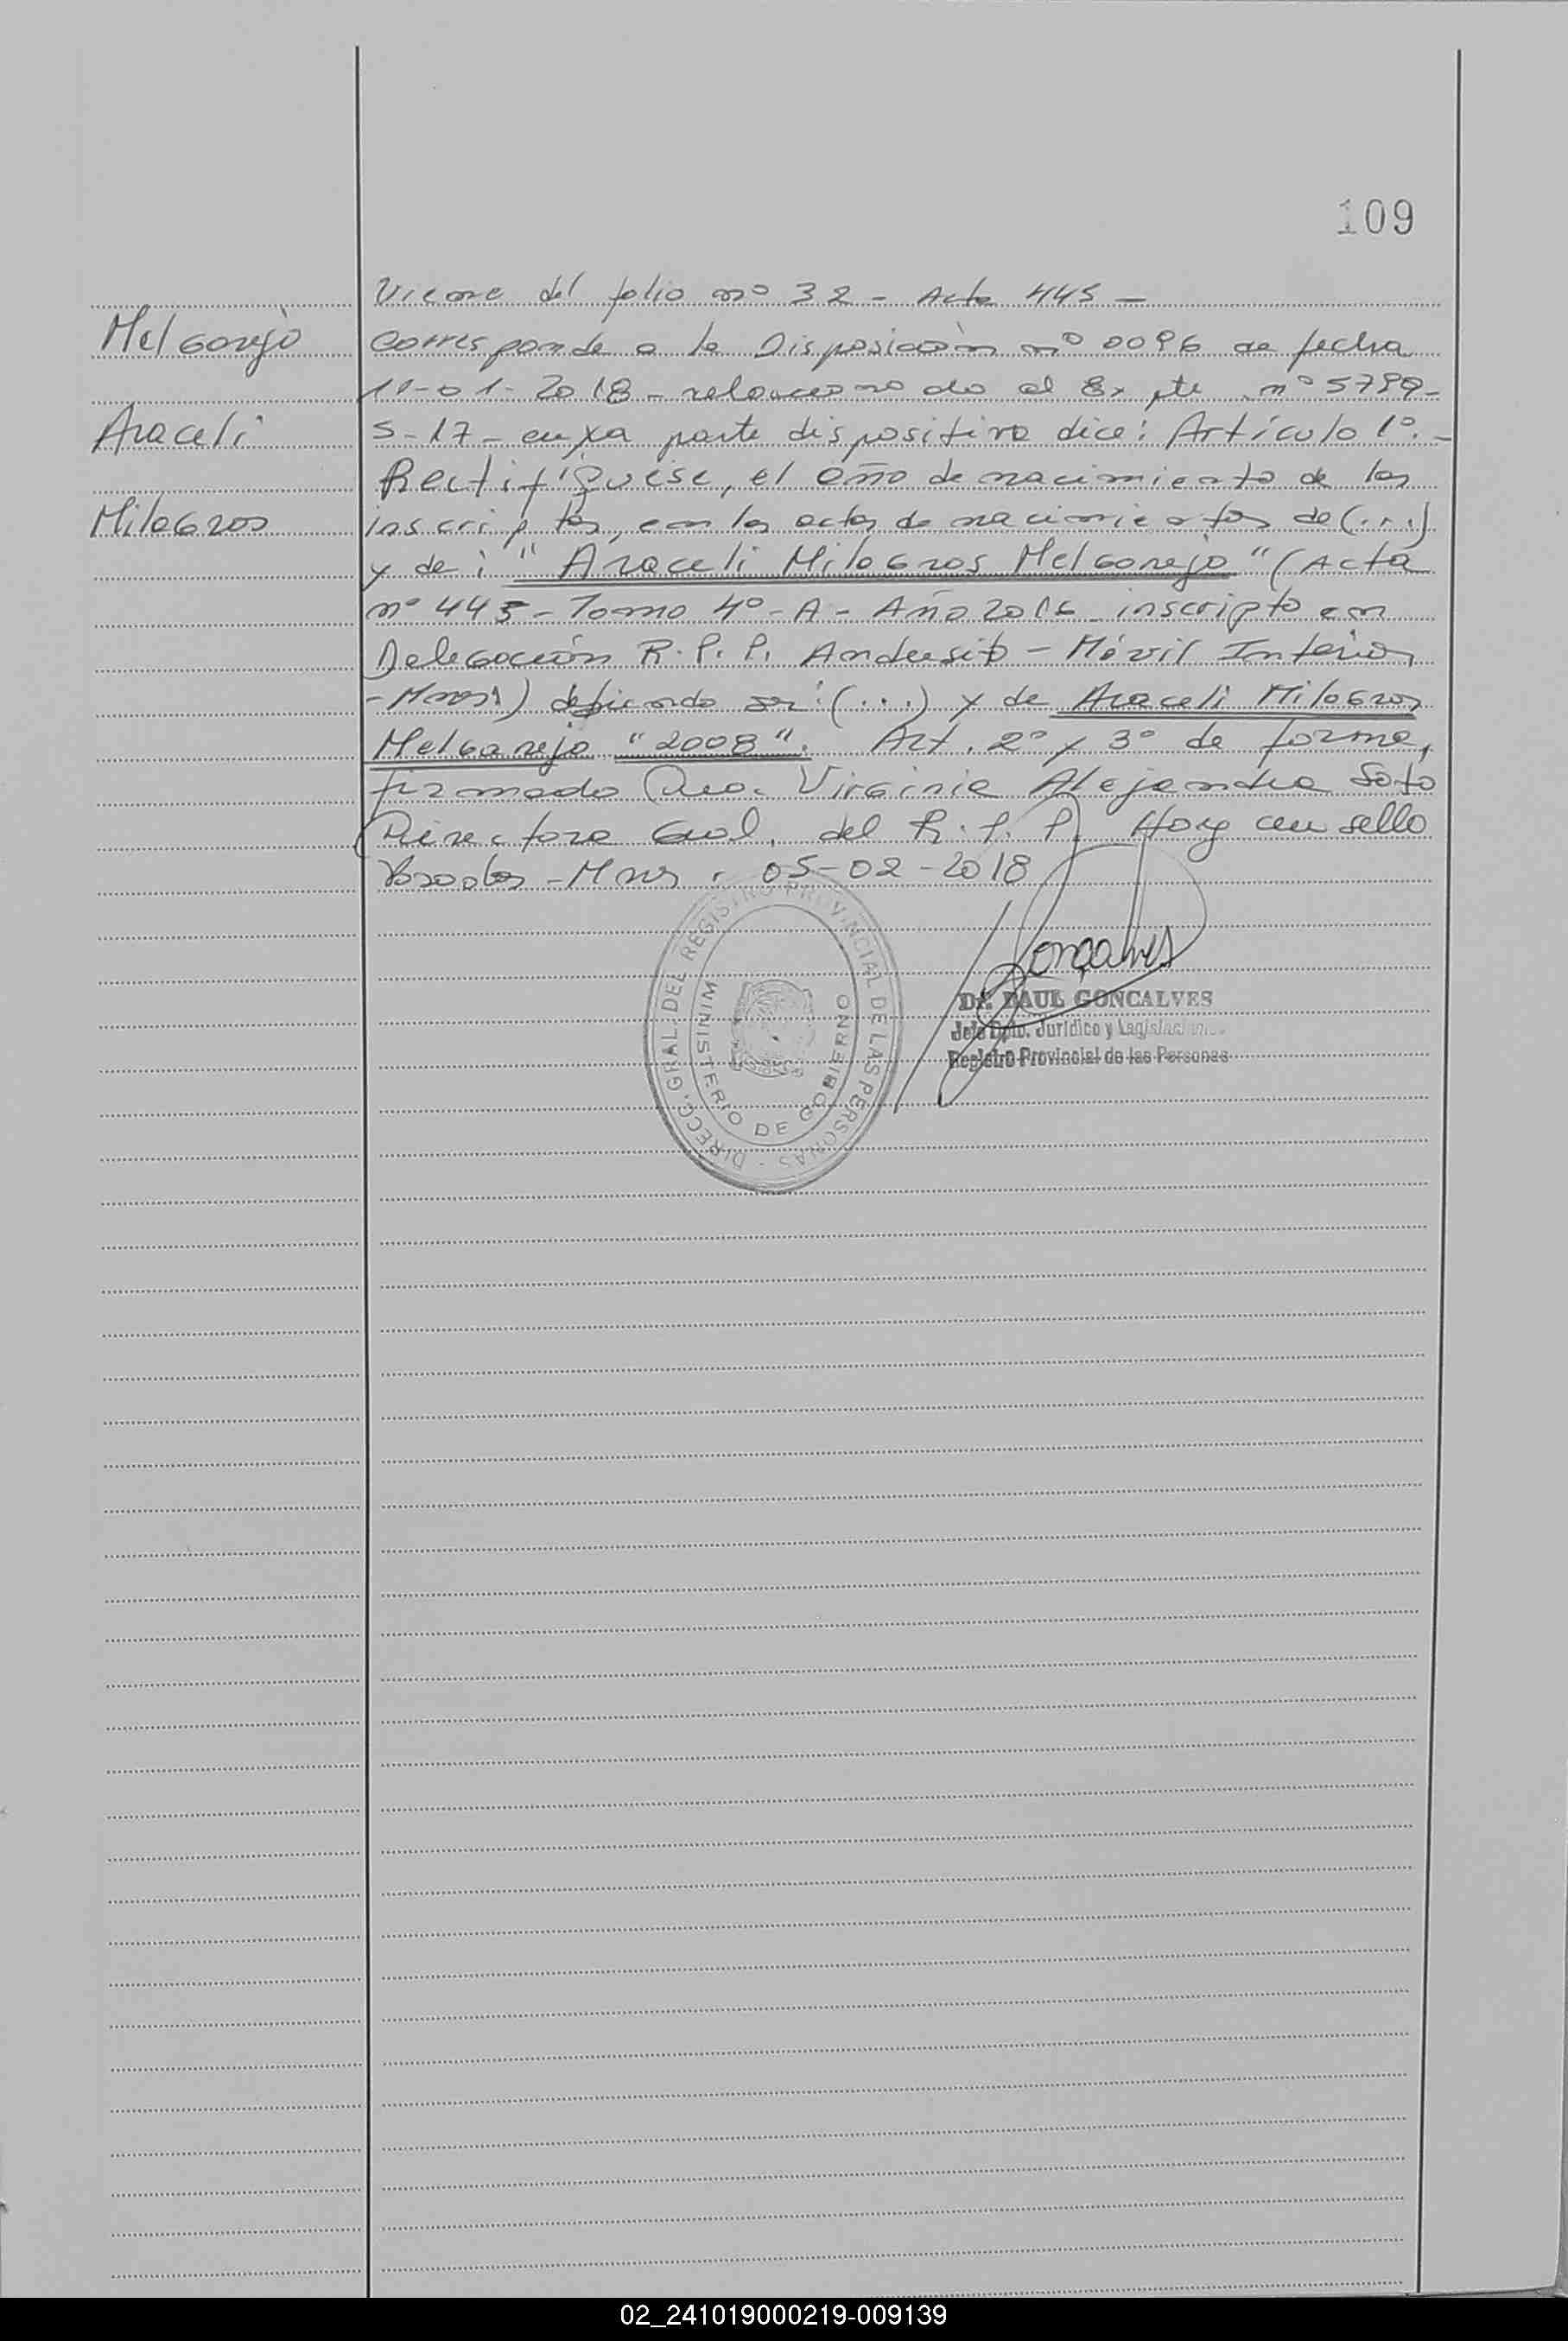 109
Viene del folio nº 32 - Acta 445 -
Melgarejo
Corresponde a la Disposición nº 0096 de fecha
-01-2018 - relacionado al Expte nº 5789-
Araceli
S-17- cuya parte dispositiva dice: Artículo 1º.-
Rectifíquese, el año de nacimiento de las
Milagros
inscriptas, en las actas de nacimientos de (...)
y de: "Araceli Milagros Melgarejo" (Acta
nº 445 - Tomo 4º - A - Año 2016 inscripto en
Delegación R.P.P. Andresito - Móvil Interior
-Mnes) debiendo ser: (...) y de Araceli Milagros
Melgarejo "2008". Art. 2º y 3º de forma,
firmado Virginia Alejandra Soto
Directora Gral. del R.P.P. Hoy
Posadas - Mnes. 05-02-2018
DIRECC. GRAL. DEL REGISTRO PROVINCIAL DE LAS PERSONAS -
MINISTERIO DE GOBIERNO
Goncalves
Dr. RAUL GONCALVES
Jefe Dpto. Jurídico y
Registro Provincial de las Personas
02_241019000219-009139